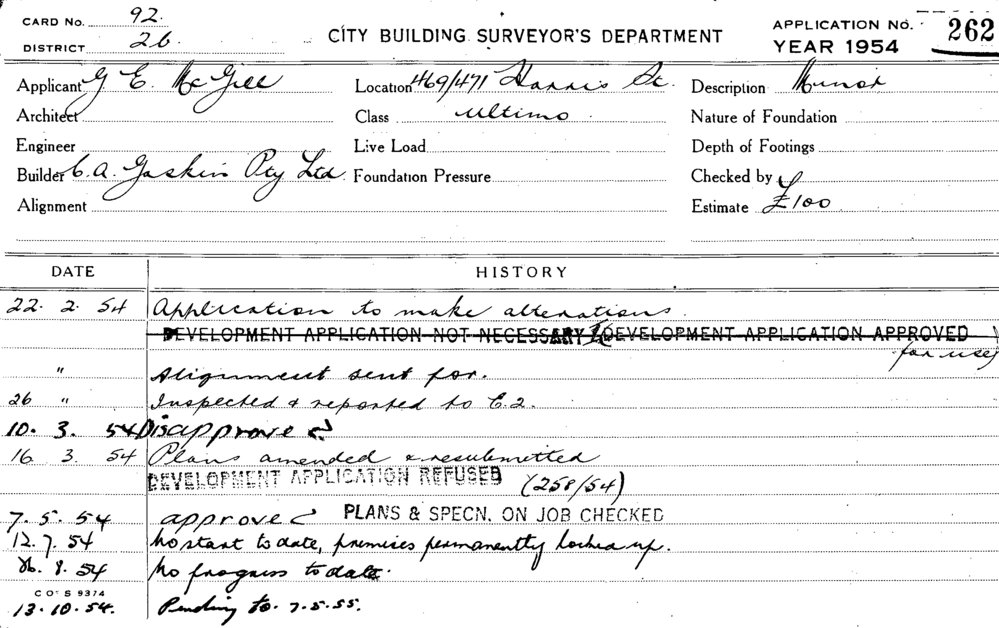 CARD No. 92.
DISTRICT 26
CITY BUILDING SURVEYOR'S DEPARTMENT
APPLICATION No. 262
YEAR 1954
Applicant G E. McGill Location 469/471 Harris St. Description Minor
Architect Class Ultimo Nature of Foundation
Engineer Live Load Depth of Footings
Builder C. A. Gaskin Pty Ltd Foundation Pressure Checked by
Alignment Estimate £100
DATE HISTORY
22. 2. 54 Application to make alterations.
DEVELOPMENT APPLICATION NOT NECESSARY (DEVELOPMENT APPLICATION APPROVED
for use)
" Alignment sent for.
26 " Inspected & reported to E.2.
10. 3. 54 Disapproved
16 3. 54 Plans amended & resubmitted
DEVELOPMENT APPLICATION REFUSED (258/54)
7. 5. 54 approved PLANS & SPECN. ON JOB CHECKED
12. 7. 54 No start to date, premises permanently locked up.
26. 8. 54 No progress to date.
CO* S 9374
13. 10. 54. Pending to. 7. 5. 55.